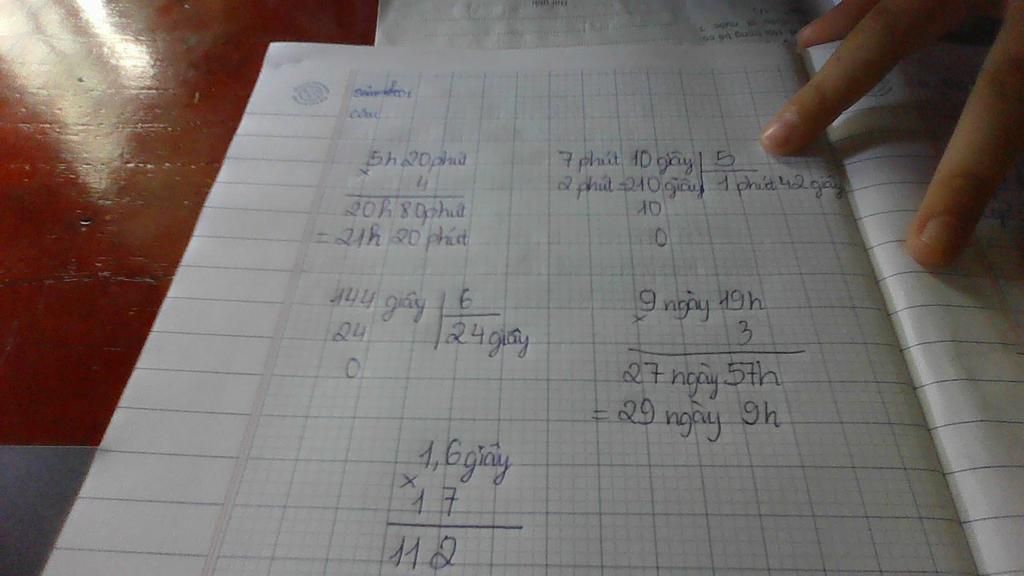 câu
5h 20 phút
× 4
20h 80 phút
= 21h 20 phút
7 phút 10 giây 5
2 phút = 210 giây 1 phút 42 giây
10
0
144 giây 6
24 24 giây
0
9 ngày 19h
× 3
27 ngày 57h
= 29 ngày 9h
1,6 giây
× 1 7
11 2